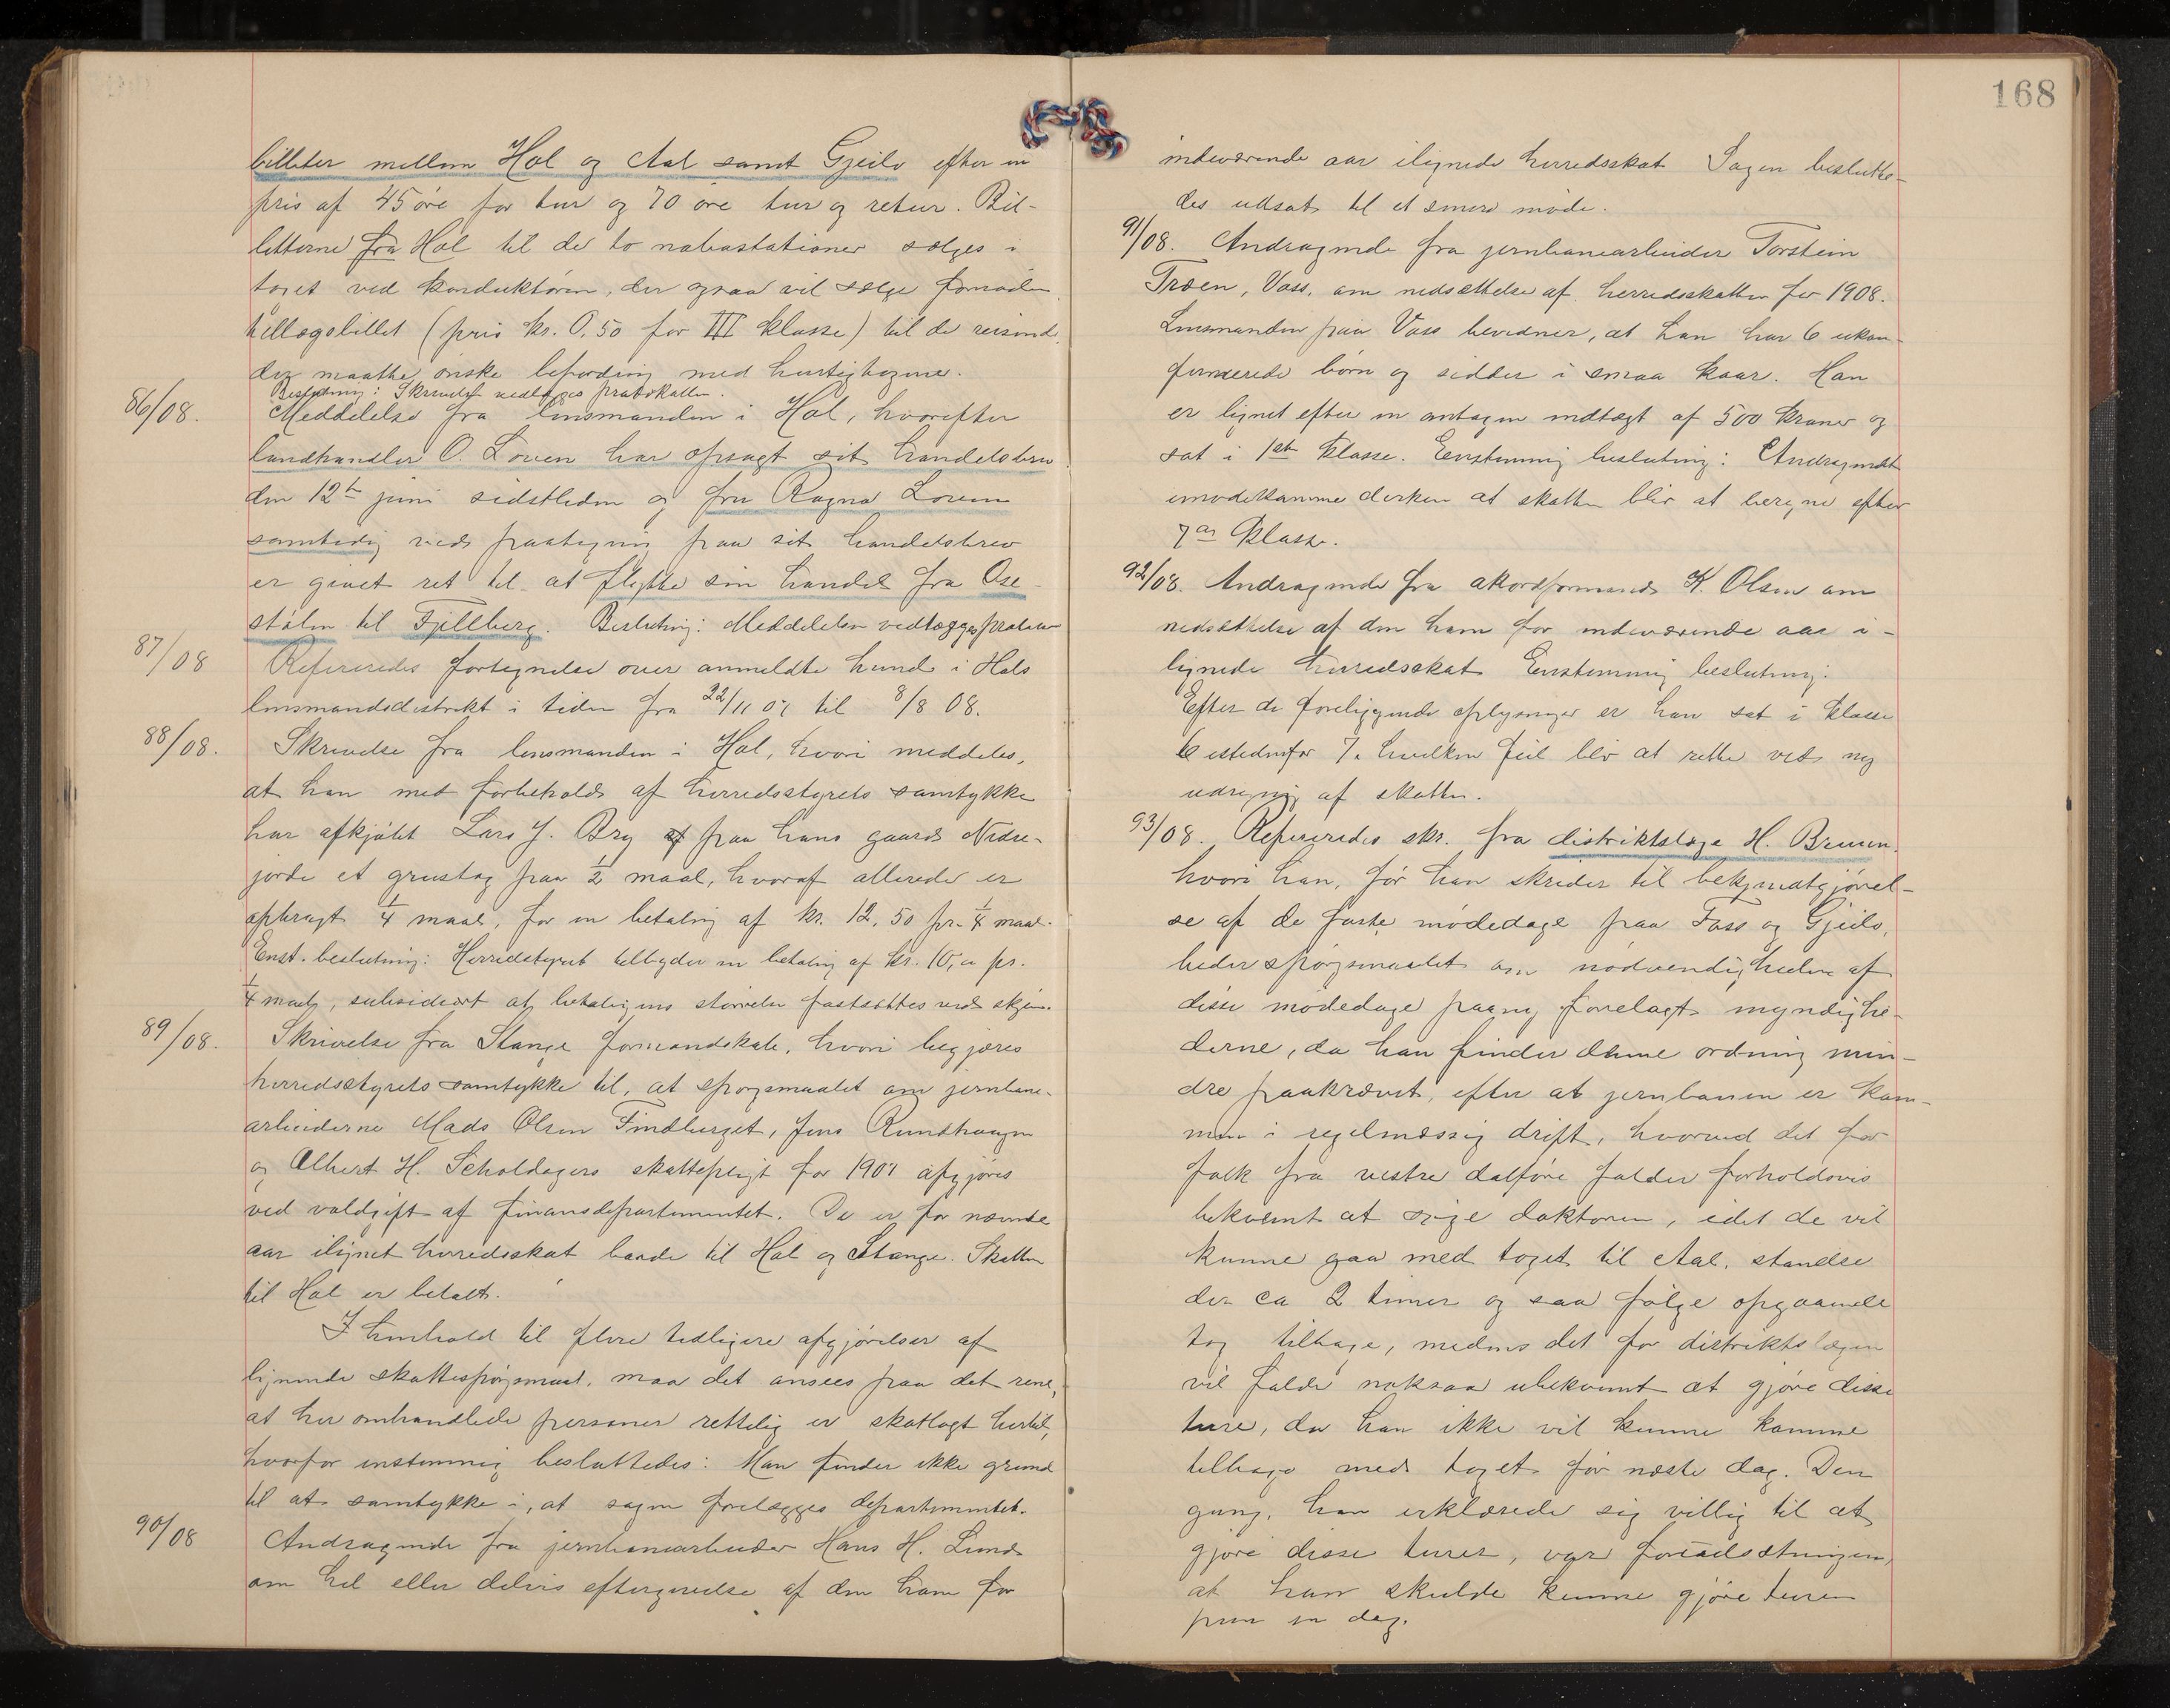 168
billeter mellem Hol og Aal samt Gjeilo efter en
pris af 45 øre for tur og 70 øre tur og retur. Bil-
letterne fra Hol til de to nabostationer sælges i
toget ved konduktøren, der ogsaa vil sælge fornøden
tillægsbillet (pris kr. 0.50 for III klasse) til de reisende,
der maatte ønske befordring med hurtigtogene.
Beslutning: Skrivelsen vedlægges protokollen.
86/08. Meddelelse fra lensmanden i Hol, hvorefter
landhandler O. Loven har opsagt sit handelsbrev
den 12te juni sidstleden og fru Ragna Loven
samtidig ved paategning paa sit handelsbrev
er givet ret til at flytte sin handel fra Ose-
stølen til Fjellberg. Beslutning: Meddelelsen vedlægges protokol
87/08 Refereredes fortegnelse over anmeldte hunde i Hols
lensmandsdistrikt i tiden fra 22/11 07 til 8/8 08.
88/08. Skrivelse fra lensmanden i Hol, hvori meddeles,
at han med forbehold af herredsstyrets samtykke
har afkjøbt Lars J. Bry af paa hans gaard Nedre-
jorde et grustag paa 1/2 maal, hvoraf allerede er
opbragt 1/4 maal, for en betaling af kr. 12,50 pr. 1/4 maal.
Enst. beslutning: Herredsstyret tilbyder en betaling af kr. 10,00 pr.
1/4 maal, subsidiært at betalingens størrelse fastsættes ved skjøn.
89/08. Skrivelse fra Stange formandskab, hvori begjæres
herredsstyrets samtykke til, at spørgsmaalet om jernbane-
arbeiderne Mads Olsen Findberget, Jens Rundhaugen
og Albert H. Scholdagers skattepligt for 1907 afgjøres
ved voldgift af finansdepartementet. De er for nævnte
aar ilignet herredsskat baade til Hol og Stange. Skatten
til Hol er betalt.
I henhold til flere tidligere afgjørelser af
lignende skattespørgsmaal, maa det ansees paa det rene,
at her omhandlede personer rettelig er skatlagt hertil,
hvorfor enstemmig besluttedes: Man finder ikke grund
til at samtykke i, at sagen forelægges departementet.
90/08 Andragende fra jernbanearbeider Hans H. Lund
om hel eller delvis eftergivelse af den ham for
indeværende aar ilignede herredsskat Sagen beslutte-
des udsat til et senere møde.
91/08. Andragende fra jernbanearbeider Torstein
Træen, Voss, om nedsættelse af herredsskatten for 1908.
Lensmanden paa Voss bevidner, at han har 6 ukon-
firmerede børn og sidder i smaa kaar. Han
er lignet efter en antagen indtægt af 500 kroner og
sat i 1ste klasse. Eenstemmig beslutning: Andragendet
imødekommes derhen at skatten blir at beregne efter
7de klasse.
92/08. Andragende fra akordformand K. Olsen om
nedsættelse af den ham for indeværende aar i-
lignede herredsskat Enstemmig beslutning:
Efter de foreliggende oplysninger er han sat i klasse
6 istedenfor 7. hvilken feil blir at rette ved ny
udregning af skatten.
93/08. Refereredes skr. fra distriktslæge H. Bruun,
hvori han, før han skrider til bekjendtgjørel-
se af de faste mødedage paa Foss og Gjeilo,
beder spørgsmaalet om nødvendigheden af
disse mødedage paany forelagt myndighe-
derne, da han finder denne ordning min-
dre paakrævet, efter at jernbanen er kom-
men i regelmæssig drift, hvorved det for
folk fra vestre dalføre falder forholdsvis
bekvemt at søge doktoren, idet de vil
kunne gaa med toget til Aal, standse
der ca 2 timer og saa følge opgaaende
tog tilbage, medens det for distriktslægen
vil falde noksaa ubekvemt at gjøre disse
ture, da han ikke vil kunne komme
tilbage med toget før næste dag. Den
gang, han erklærede sig villig til at
gjøre disse turer, var forudsætningen,
at han skulde kunne gjøre turen
paa en dag.